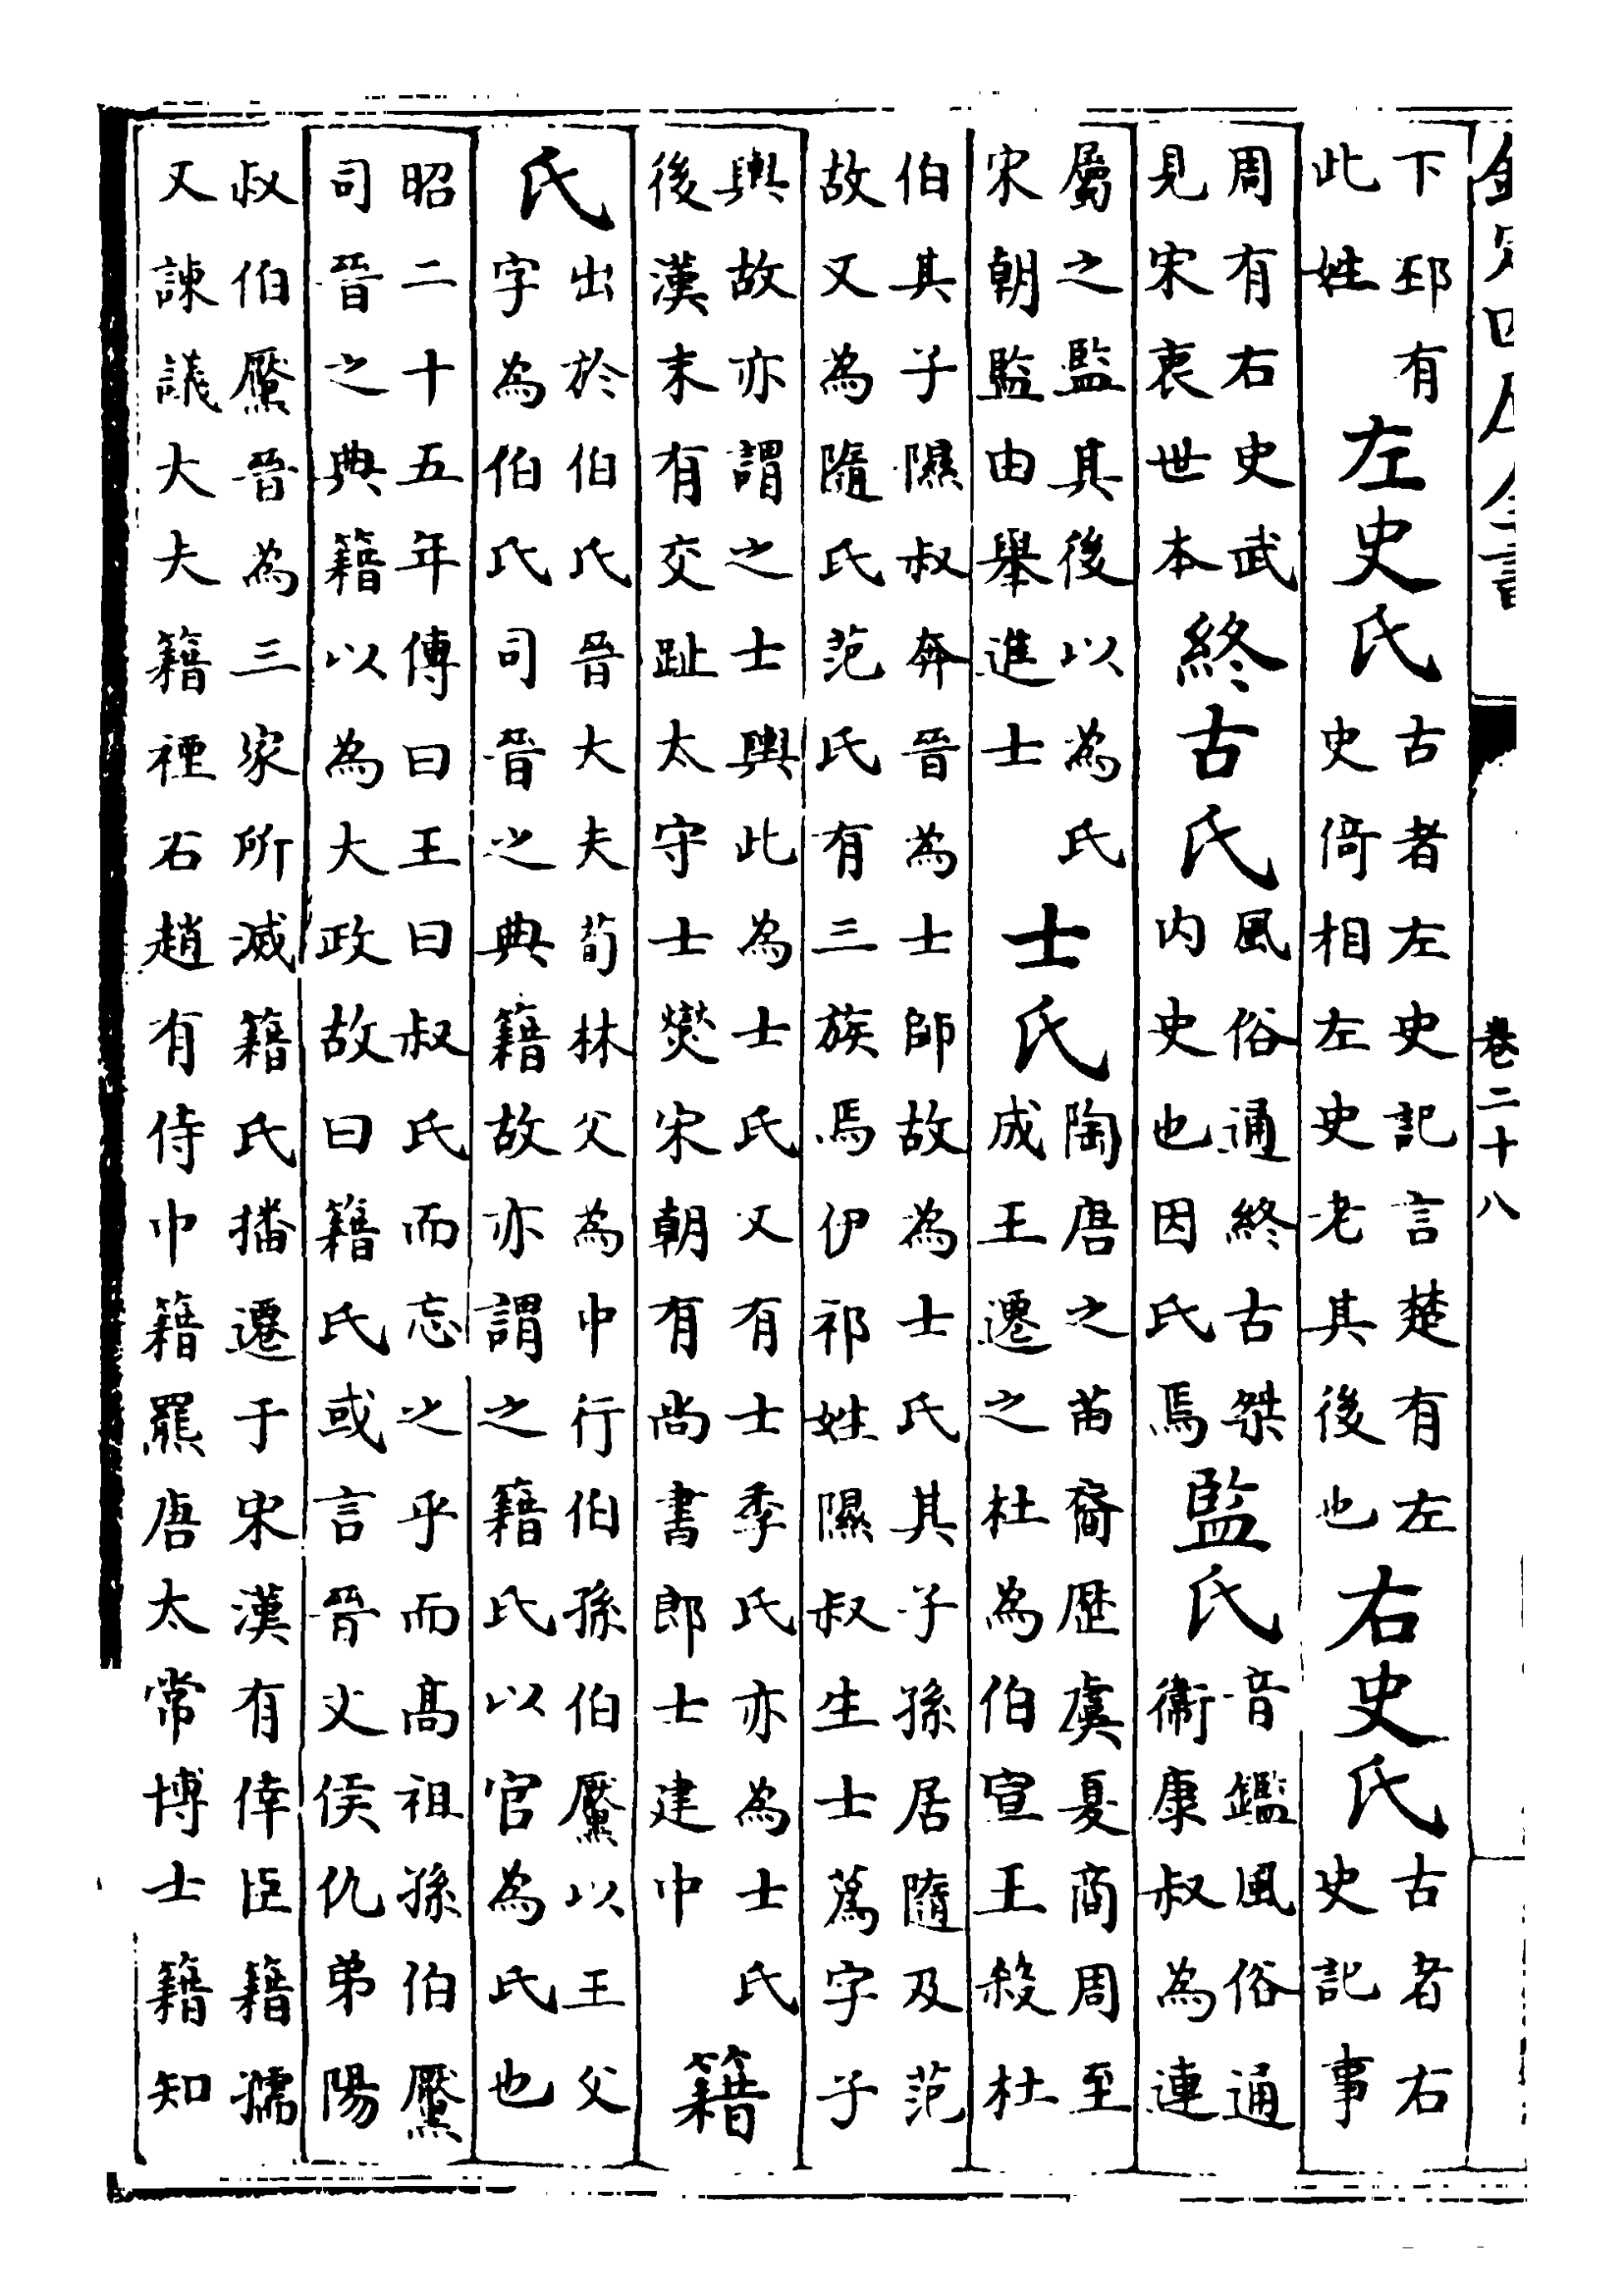 欽定四庫全書
卷二十八
下邳有
此姓
左史氏
古者左史記言楚有左
史倚相左史老其後也
右史氏
古者右
史記事
周有右史武
見宋衷世本
終古氏
風俗通終古桀
内史也因氏焉
監氏
音鑑風俗通
衞康叔為連
屬之監其後以為氏
宋朝監由舉進士
士氏
陶唐之苗裔歴虞夏商周至
成王遷之杜為伯宣王殺杜
伯其子隰叔奔晉為士師故為士氏其子孫居隨及范
故又為隨氏范氏有三族焉伊祁姓隰叔生士蒍字子
輿故亦謂之士輿此為士氏又有士季氏亦為士氏
後漢末有交趾太守士爕宋朝有尚書郎士建中
籍
氏
出於伯氏晉大夫荀林父為中行伯孫伯黶以王父
字為伯氏司晉之典籍故亦謂之籍氏以官為氏也
昭二十五年傳曰王曰叔氏而忘之乎而髙祖孫伯黶
司晉之典籍以為大政故曰籍氏或言晉文侯仇弟陽
叔伯黶晉為三家所滅籍氏播遷于宋漢有倖臣籍孺
又諫議大夫籍禋石趙有侍中籍羆唐太常博士籍知